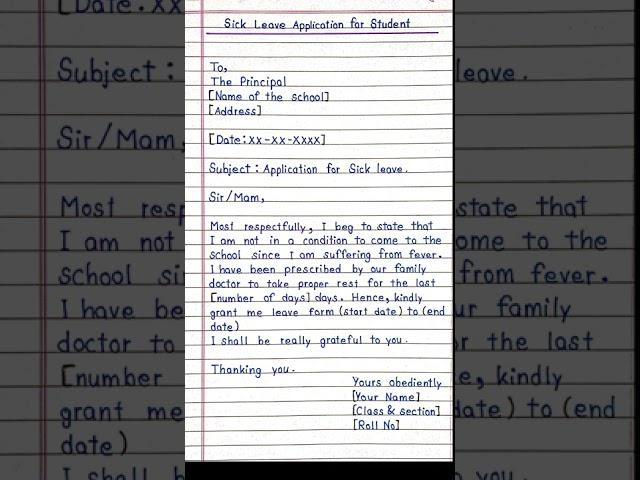 Sick Leave Application for Student
To,
The Principal
[Name of the school]
[Address]
[Date:XX-XX-XXXX]
Subject: Application for Sick leave.
Sir/Mam,
Most respectfully, I beg to state that
I am not in a condition to come to the
school since I am suffering from fever.
I have been prescribed by our family
doctor to take proper rest for the last
[number of days] days. Hence, kindly
grant me leave form (start date) to (end
date)
I shall be really grateful to you.
Thanking you.
Yours obediently
[Your Name]
[Class & section]
[Roll No]